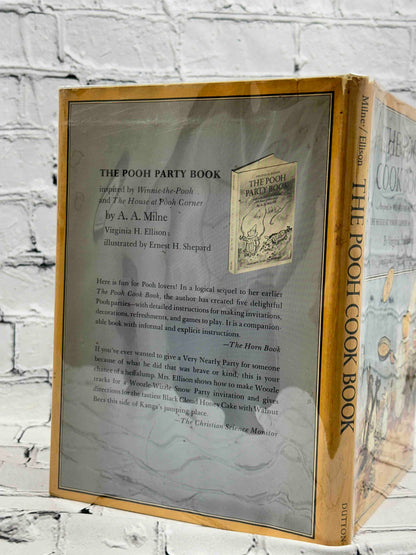 THE POOH PARTY BOOK
inspired by Winnie-the-Pooh
and The House at Pooh Corner
by A. A. Milne
Virginia H. Ellison
illustrated by Ernest H. Shepard
THE POOH
PARTY BOOK
Here is fun for Pooh lovers! In a logical sequel to her earlier
The Pooh Cook Book, the author has created five delightful
Pooh parties—with detailed instructions for making invitations,
decorations, refreshments, and games to play. It is a companion-
able book with informal and explicit instructions.
—The Horn Book
If you've ever wanted to give a Very Nearly Party for someone
because of what he did that was brave or kind, this is your
chance of a heffalump. Mrs. Ellison shows how to make Woozle
tracks for a Woozle-Wizzle Snow Party invitation and gives
directions for the tastiest Black Cloud Honey Cake with Walnut
Bees this side of Kanga's jumping place.
—The Christian Science Monitor
Milne/Ellison
THE POOH COOK BOOK
DUTTON
COOK